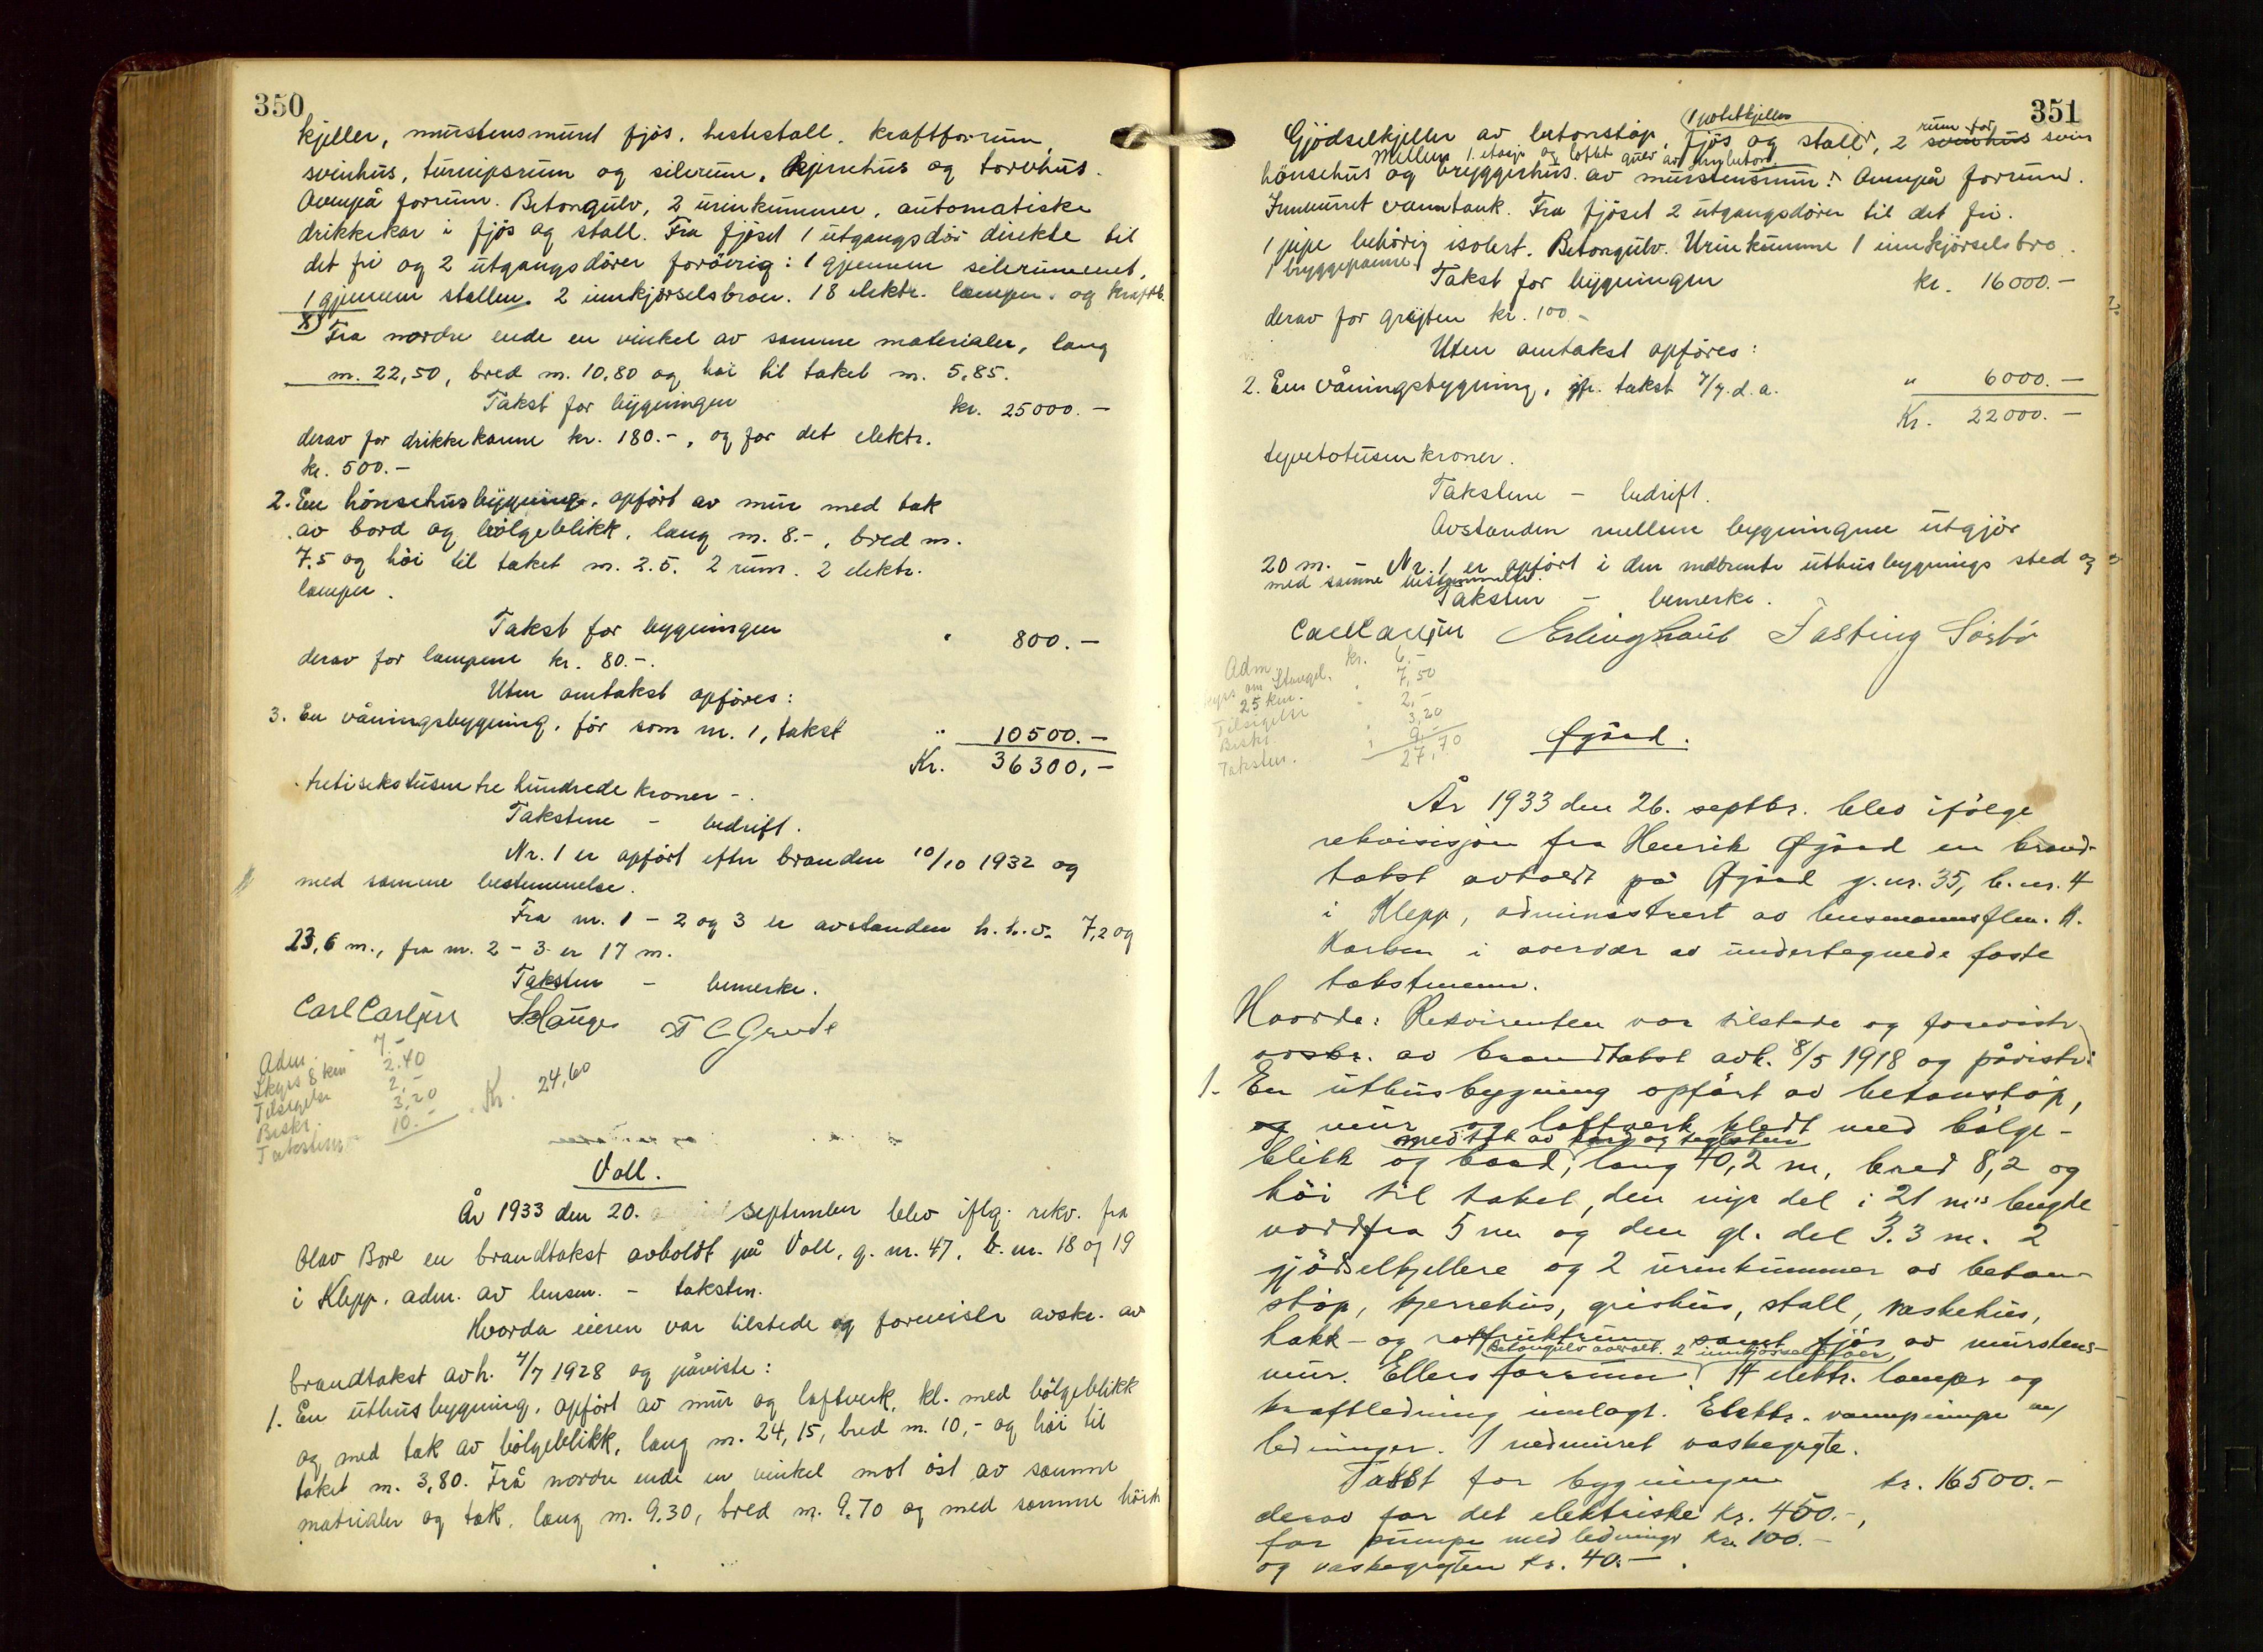 350
kjeller, murstensmuret fjøs, hestestall, kraftforrum,
svinhus, turnipsrum og silorum, kjerrehus og torvhus.
Ovenpå forrum. Betongulv, 2 urinkummer, automatiske
drikkekar i fjøs og stall. Fra fjøset 1 utgangsdør direkte til
det fri og 2 utgangsdører forøvrig: 1 gjennem silorummet,
1 gjennem stallen. 2 innkjørselsbroer. 18 elektr. lamper og kraftl.
x) Fra nordre ende en vinkel av samme materialer, lang
m. 22,50, bred m. 10,80 og høi til taket m. 5,85.
Takst for bygningen kr. 25000.—
derav for drikkekarene kr. 180.-, og for det elektr.
kr. 500.-
2. En hønsehusbygning, opført av mur med tak
av bord og bølgeblikk, lang m. 8.-, bred m.
7,5 og høi til taket m. 2.5. 2 rum. 2 elektr.
lamper.
Takst for bygningen " 800.—
derav for lampene kr. 80.-.
Uten omtakst opføres:
3. En våningsbygning, før som nr. 1, takst " 10500.—
Kr. 36300,—
tretisekstusen tre hundrede kroner -.
Takstene - bedrift.
Nr. 1 er opført efter branden 10/10 1932 og
med samme bestemmelse.
Fra nr. 1 - 2 og 3 er avstanden h.h.v. 7,2 og
23,6 m., fra nr. 2 - 3 er 17 m.
Taksten - bemerke.
Carl Carlsen Hauge T C Grude
Adm. 7.-
Skyss 8 km 2.40
Tilsigelse 2,-
Beskr. 3,20
Takstm. 10.- Kr. 24,60
Voll.
År 1933 den 20. september blev iflg. rekv. fra
Olav Bore en brandtakst avholdt på Voll, g. nr. 47, b. nr. 18 og 19
i Klepp, adm. av lensm. - takstm.
Hvorda eieren var tilstede og foreviste avskr. av
brandtakst avh. 4/7 1928 og påviste:
1. En uthusbygning, opført av mur og loftverk, kl. med bølgeblikk
og med tak av bølgeblikk, lang m. 24,15, bred m. 10,- og høi til
taket m. 3,80. Fra nordre ende en vinkel mot øst av samme
materialer og tak, lang m. 9,30, bred m. 9,70 og med samme høide
351
1 potetkjeller
Gjødselkjeller av betonstøp, fjøs og stall, 2 svinhus rum for svin
Mellem 1. etasje og loftet gulv av
hönsehus og bryggerhus av murstensmur. Ovenpå forrum.
Innmuret vanntank. Fra fjøset 2 utgangsdører til det fri.
1 pipe behørig isolert. Betongulv. Urinkumme 1 innkjörselsbro.
1 bryggepanne.
Takst for bygningen kr. 16000.—
derav for gryten kr. 100.-
Uten omtakst opføres:
2. En våningsbygning, jfr. takst 4/7 d. a. " 6000.—
Kr. 22000.—
tyvetotusen kroner.
Takstene - bedrift.
Avstanden mellem bygningene utgjør
20 m. - Nr. 1 er opført i den nedbrente uthusbygnings sted og
med samme bestemmelse.
Taksten - bemerke.
Carl Carlsen Erling Haub Tasting Sørbø
Adm. kr. 6.-
Skyss om Stangel.
25 km. " 7,50
Tilsigelse " 2,-
Beskr. " 3,20
Takstm. " 9.-
27,70
Øgård.
År 1933 den 26. septbr. blev ifølge
rekvisisjon fra Henrik Øgård en brand-
takst avholdt på Øgård g. nr. 35, b. nr. 4
i Klepp, administrert av lensmannsflm. H.
i overvær av undertegnede faste
takstmenn.
Hvorda: Rekvirenten var tilstede og foreviste
avskr. av brandtakst avh. 8/5 1918 og påviste:
1. En uthusbygning opført av betonstøp,
og mur og loftverk kledt med bølge-
med tak av bord og teglsten
blikk og bord, lang 40,2 m, bred 8,2 og
høi til taket, den nye del i 21 m's lengde
nordfra 5 m og den gl. del 3.3 m. 2
gjødselkjellere og 2 urinkummer av beton-
støp, kjerrehus, grishus, stall, vaskehus,
hakk- og rotfruktrum samt fjøs av murstens-
Betongulv overalt. 2 innkjørselsbroer,
mur. Ellers forrum. 14 elektr. lamper og
kraftledning innlagt. Elektr. vannpumpe m/
ledninger. 1 nedmuret vaskegryte.
Takst for bygningen kr. 16500.-
derav for det elektriske kr. 450.-,
for pumpe med ledninger kr. 100.-
og vaskegryten kr. 40.- .